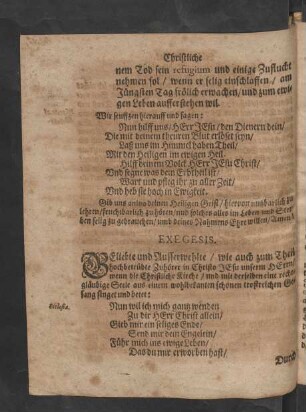 Christliche
nem Tod sein refugium und einige Zuflucht
nehmen sol / wenn er selig einschlaffen / am
Jüngsten Tag frölich erwachen / und zum ewi-
gen Leben aufferstehen wil.
Wir seufftzen hierauff und sagen:
Nun hilff uns / HErr JEsu / den Dienern dein /
Die mit deinem theuren Blut erlöset seyn /
Laß uns im Himmel haben Theil /
Mit den Heiligen im ewigen Heil.
Hilff deinem Volck HErr JEsu Christ /
Und segne was dein Erbtheil ist /
Wart und pfleg ihr zu aller Zeit /
Und heb sie hoch in Ewigkeit.
Gib uns deinen Heiligen Geist / hiervon zu
lehren / fruchtbarlich zu hören / und solches alles im Leben und Ster-
ben selig zu gebrauchen / umb deines Nahmens Ehre willen / Amen.
EXEGESIS.
GEliebte und Außerwehlte / wie auch zum Theil
hochbetrübte Zuhörer in Christo JEsu unserm HErrn,
wenn die Christliche Kirche / und mit derselben eine recht-
gläubige Seele aus einem wohlbekanten schönen trostreichen Ge-
sang singet und betet:
Ecclesia.
Nun wil ich mich gantz wenden
Zu dir HErr Christ allein /
Gieb mir ein seliges Ende /
Send mir dein Engelein /
Führ mich ins ewge Leben /
Das du mir erworben hast /
Durch